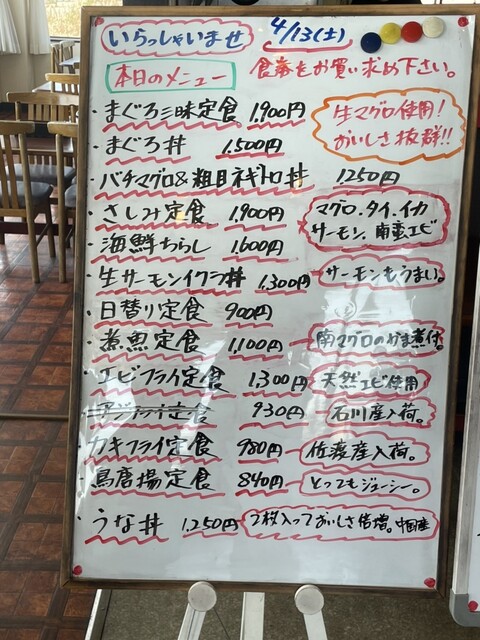 いらっしゃいませ 4/13(土)
本日のメニュー 食券をお買い求め下さい。
・まぐろ三昧定食 1,900円
生マグロ使用!
おいしさ抜群!!
・まぐろ丼 1,500円
・バチマグロ&粗目ネギトロ丼 1250円
・さしみ定食 1,900円
マグロ.タイ.イカ
サーモン.南蛮エビ
・海鮮ちらし 1,600円
・生サーモンイクラ丼 1,300円 サーモンもうまい。
・日替り定食 900円
・煮魚定食 1,100円 南マグロのかま煮付。
・エビフライ定食 1,300円 天然エビ使用!
フライ定食 930円 石川産入荷。
・カキフライ定食 980円 佐渡産入荷。
・鳥唐揚定食 840円 とってもジューシー。
・うな丼 1,250円 2枚入っておいしさ倍増。中国産